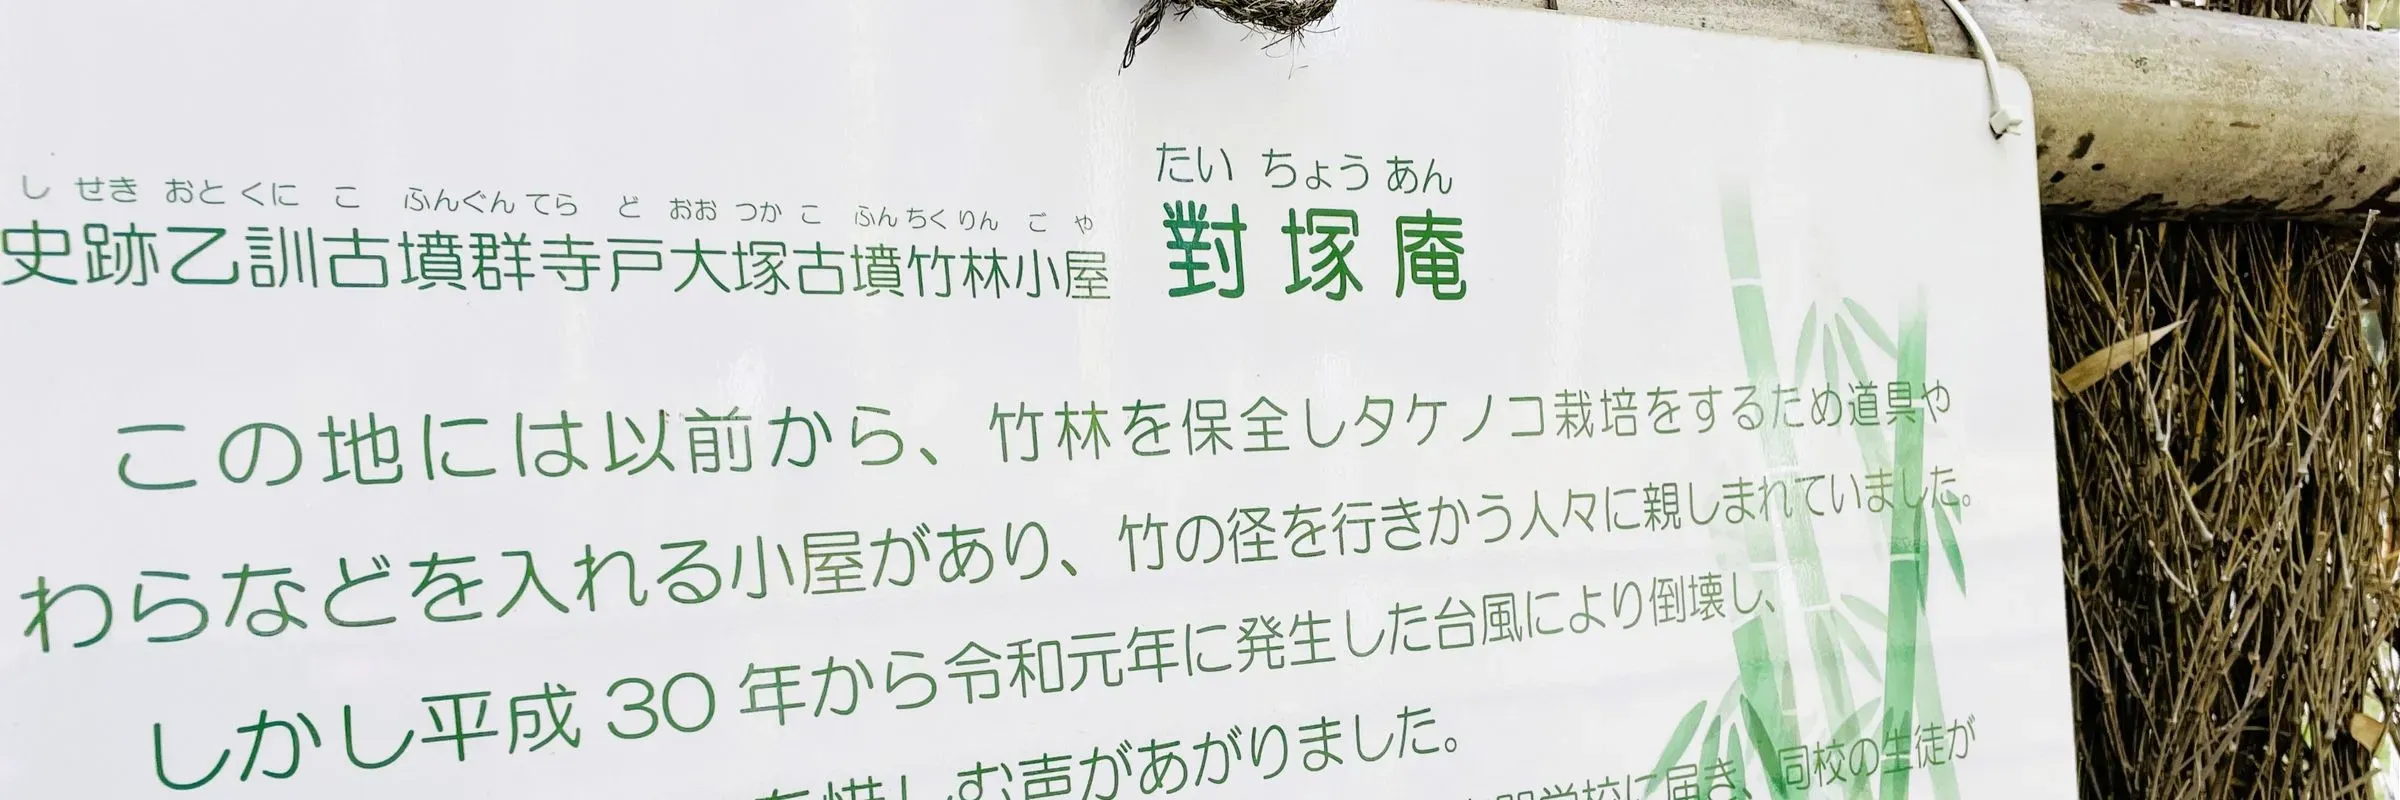 し せき おと くに こ ふんぐん てら ど おお つか こ ふん ちく りん ご や たい ちょう あん
史跡乙訓古墳群寺戸大塚古墳竹林小屋 對塚庵
この地には以前から、竹林を保全しタケノコ栽培をするため道具や
わらなどを入れる小屋があり、竹の径を行きかう人々に親しまれていました。
しかし平成30年から令和元年に発生した台風により倒壊し、
惜しむ声があがりました。
学校に届き、同校の生徒が